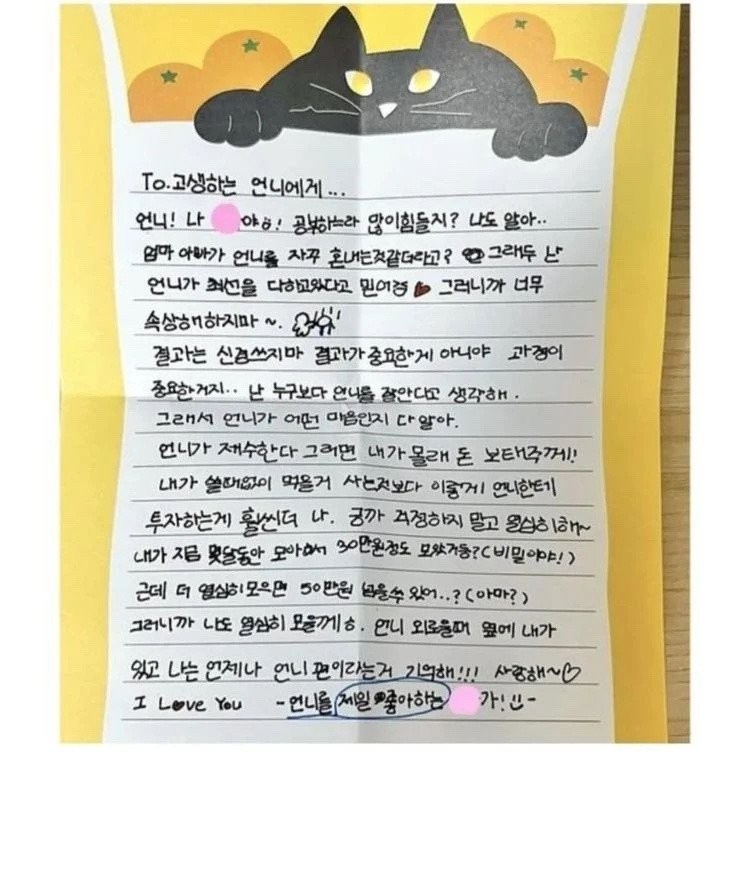 To.고생하는 언니에게...
언니! 나 야ㅎ! 공부하느라 많이힘들지? 나도 알아..
엄마 아빠가 언니를 자꾸 혼내는것같더라고? 그래두 난
언니가 최선을 다하고있다고 믿어정 그러니까 너무
속상해하지마~.
결과는 신경쓰지마 결과가중요한게 아니야 과정이
중요한거지.. 난 누구보다 언니를 잘안다고 생각해.
그래서 언니가 어떤 마음인지 다알아.
언니가 재수한다 그러면 내가몰래 돈 보태주께!!
내가 쓸때없이 먹을거 사는것보다 이렇게 언니한테
투자하는게 훨씬더 나. 긍까 걱정하지 말고 열심히해~
내가 지금 몇달동안 모아놔서 30만원정도 모았거등?(비밀이야!)
근데 더 열심히모으면 50만원 넘을수있어..?(아마?)
그러니까 나도 열심히 모을께ㅎ. 언니 외로울때 옆에 내가
있고 나는 언제나 언니 편이라는거 기억해!!! 사랑해~♡
I Love You -언니를 제일 좋아하는 가!-